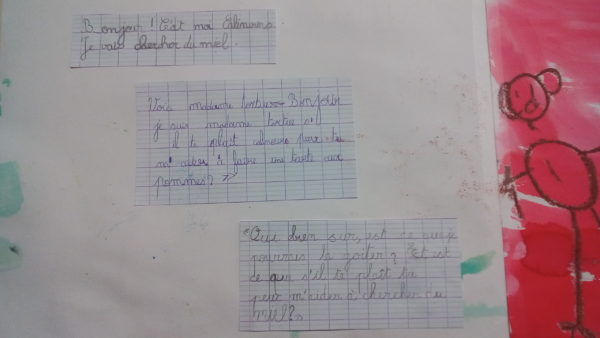 Bonjour ! C'est moi Câlinours.
Je vais chercher du miel.
Voici madame tortue « Bonjour
je suis madame tortue s'
il te plaît calinours peux-tu
m'aider à faire une tarte aux
pommes ? »
« Oui bien sur, est ce que je
pourrais la goûter ? Et est
ce que s'il te plaît tu
peux m'aider à chercher du
miel ? »